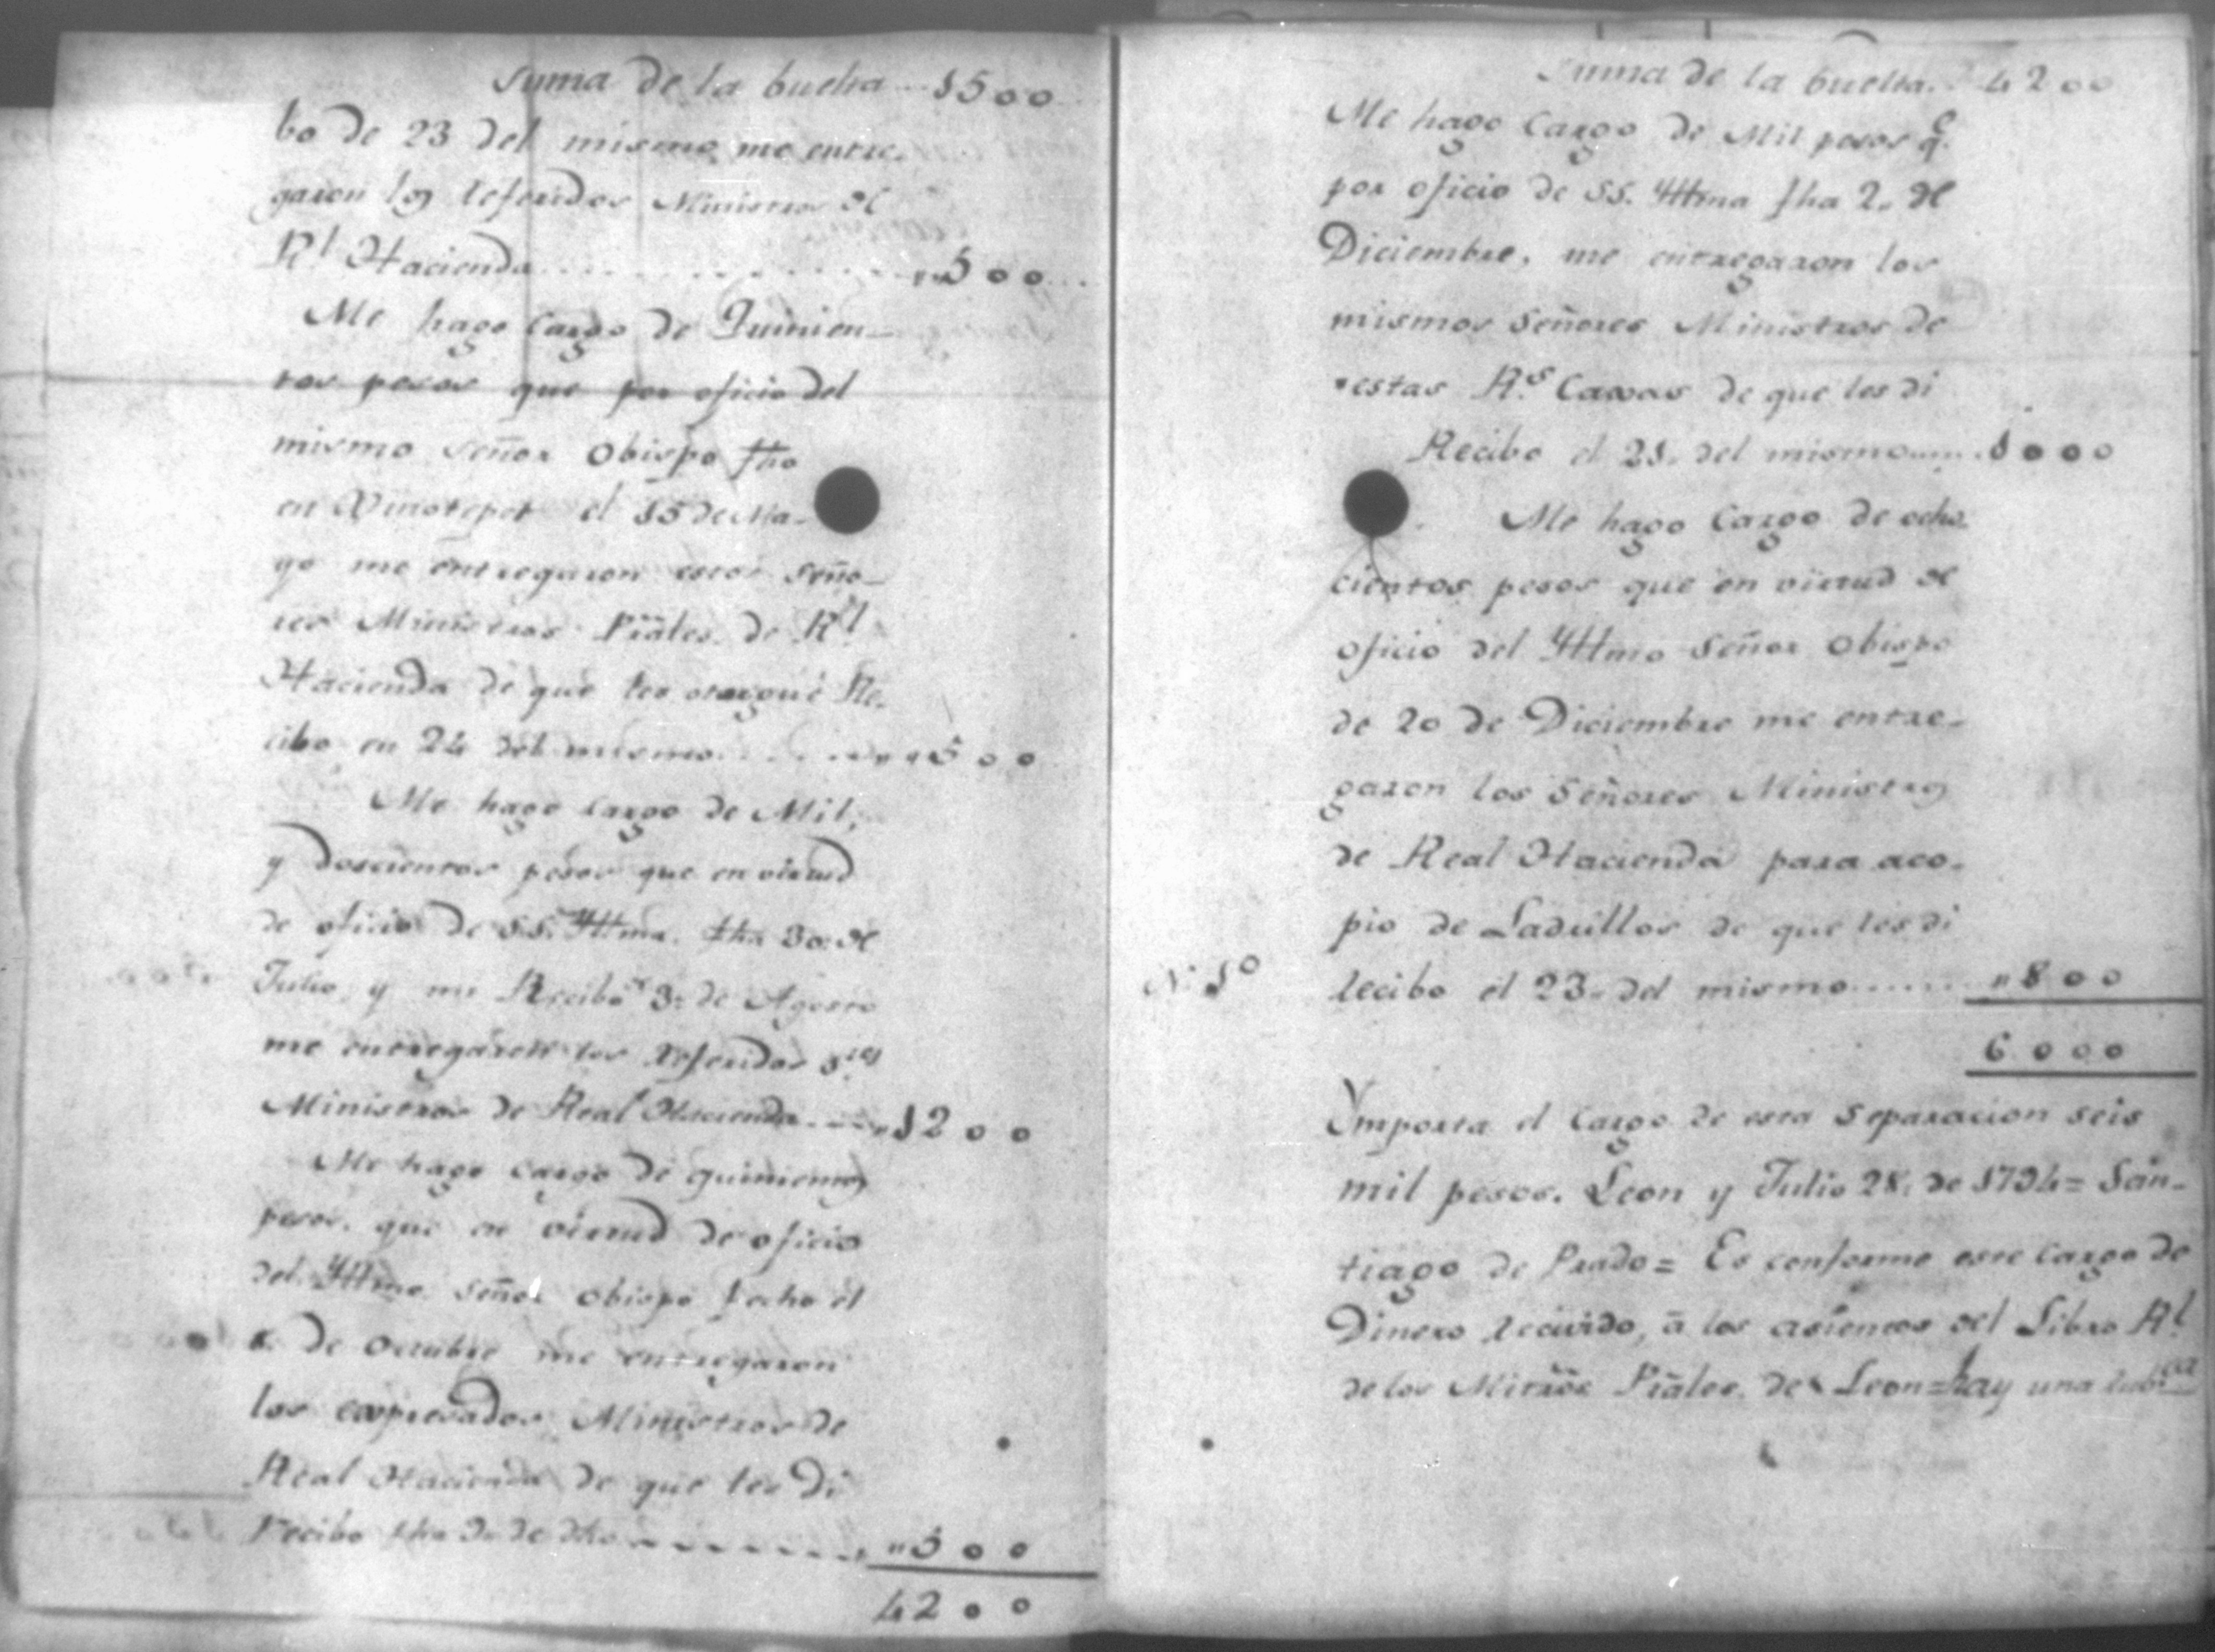 Suma de la buelta... 1500
bo de 23 del mismo me entre-
garon los referidos Ministros de
Rl. Hacienda..........,,500...
Me hago Cargo de Quinien-
tos pesos que por oficio del
mismo Señor Obispo fho
en Xinotepet el 15 de Ma-
yo me entregaron estos Seño-
res Ministros Prāles. de Rl.
Hacienda de que les otorgué Re-
cibo en 24 del mismo........,,500
Me hago Cargo de Mil,
y doscientos pesos que en virtud
de oficio de S.S. Yltma. fha 30. de
Julio y mi Recibo 3. de Agosto
me entregaron los referidos Sres
Ministros de Real Hacienda....,,1200
Me hago Cargo de quinientos
pesos, que en virtud de oficio
del Yltmo. Señor Obispo fecho el
de Octubre me entregaron
los expresados Ministros de
Real Hacienda de que les Di
Recibo fha 9. de dho........,,500
4200
Suma de la buelta... 4200
Me hago Cargo de Mil pesos q.e
por oficio de SS. Yltma fha 2. de
Diciembre, me entregaron los
mismos Señores Ministros de
estas R.s Caxas de que les di
Recibo el 21. del mismo.....1000
Me hago Cargo de ocho-
cientos pesos que en virtud de
oficio del Yltmo Señor Obispo
de 20 de Diciembre me entre-
garon los Señores Ministros
de Real Hacienda para aco-
pio de Ladrillos de que les di
N. 1º recibo el 23. del mismo......,,800
6000
Ymporta el Cargo de esta Separacion seis
mil pesos. Leon y Julio 28. de 1794= San-
tiago de Prado= Es conforme este Cargo de
Dinero recivido, ā los asientos del Libro Rl.
de los Mitrōs Prāles. de Leon=hay una rubca